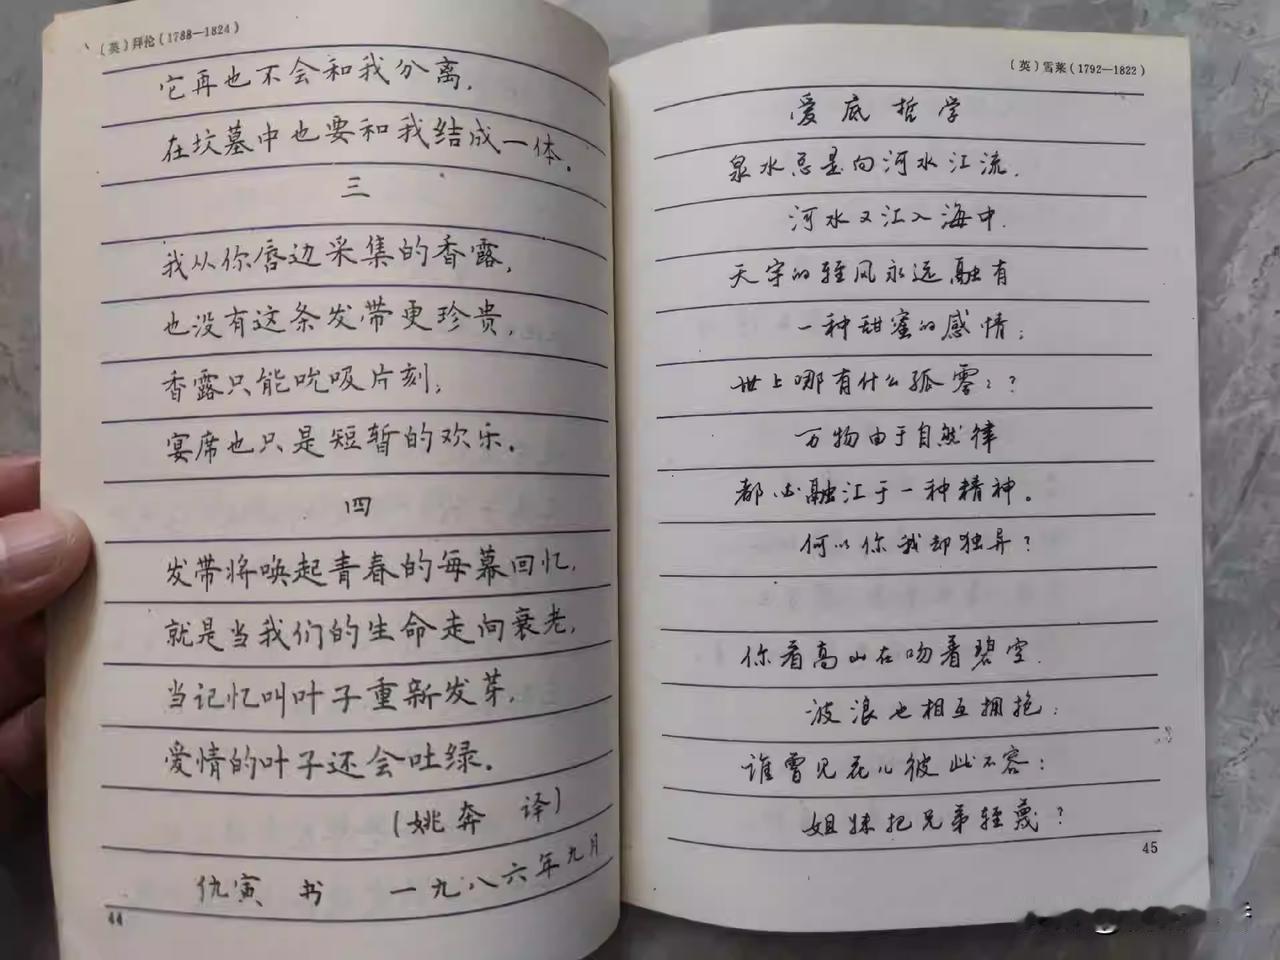 〔英〕拜伦(1788—1824)
它再也不会和我分离,
在坟墓中也要和我结成一体。
三
我从你唇边采集的香露,
也没有这条发带更珍贵,
香露只能吮吸片刻;
宴席也只是短暂的欢乐。
四
发带将唤起青春的每幕回忆,
就是当我们的生命走向衰老,
当记忆叫叶子重新发芽,
爱情的叶子还会吐绿。
(姚奔 译)
仇寅 书 一九八六年九月
44
〔英〕雪莱(1792—1822)
爱底哲学
泉水总是向河水汇流,
河水又汇入海中.
天宇的轻风永远融有
一种甜蜜的感情;
世上哪有什么孤零零?
万物由于自然律
都必融汇于一种精神。
何以你我却独异?
你看高山在吻着碧空.
波浪也相互拥抱;
谁曾见花儿彼此不容:
姐妹把兄弟轻蔑?
45